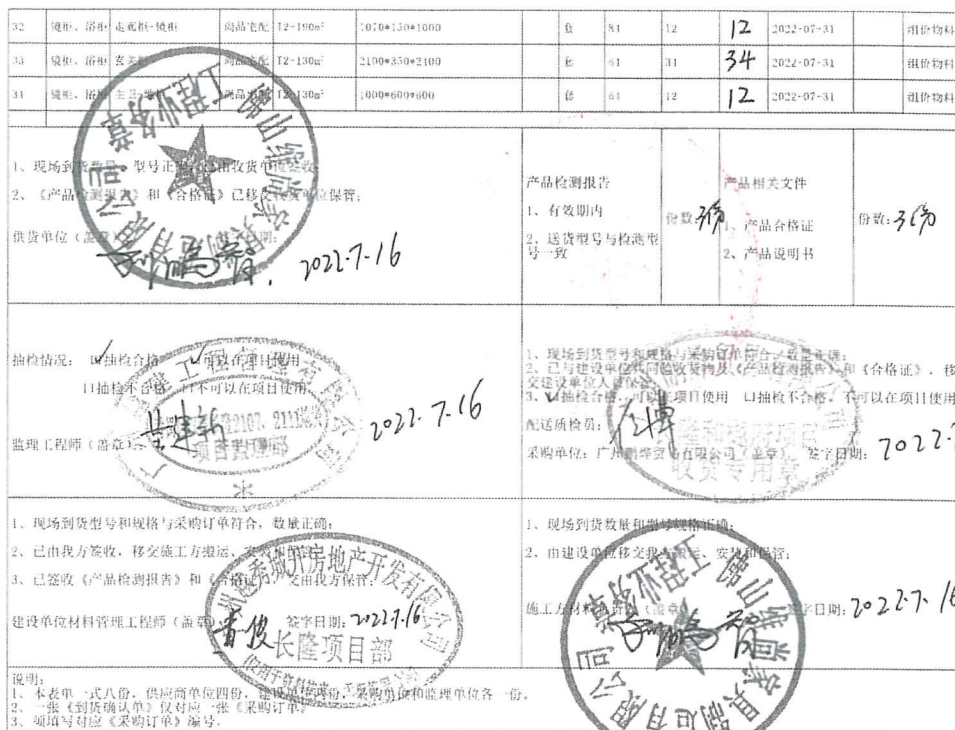 32 镜柜、浴柜 走 柜-镜柜 尚品宅配 T2-190m² 1070*150*1000 套 84 12 12 2022-07-31 组价物料
33 镜柜、浴柜 玄关 尚品宅配 T2-130m² 2100*350*2400 套 61 34 34 2022-07-31 组价物料
34 镜柜、浴柜 主卫-地柜 尚品宅配 T2-130m² 1000*600*600 套 61 12 12 2022-07-31 组价物料
1、现场到货数量、型号正确 由收货单位签收
2、《产品检测报告》和《合格证》已移交收货单位保管;
供货单位(盖章) 日期: 2022-7-16
佛山维尚家具制造有限公司
工程业务章
产品检测报告
1、有效期内
2、送货型号与检测型
号一致
份数:3份
产品相关文件
1、产品合格证
2、产品说明书
份数:3份
抽检情况: ☑抽检合格 ☑可以在项目使用
口抽检不合格 口不可以在项目使用
监理工程师(盖章): 2022.7.16
项目监理部
1、现场到货型号和规格与采购订单符合,数量正确;
2、已与建设单位共同验收货物及《产品检测报告》和《合格证》,移
交建设单位人员保管
3、☑抽检合格,可以在项目使用 口抽检不合格,不可以在项目使用
配送质检员:
采购单位:广州鹏烨贸易有限公司(盖章) 签字日期: 2022.7
收货专用章
1、现场到货型号和规格与采购订单符合,数量正确;
2、已由我方签收,移交施工方搬运、安装和保管;
3、已签收《产品检测报告》和《合格证》,交由我方保管;
建设单位材料管理工程师(盖章) 签字日期: 2022.7.16
城开房地产开发有限公司
长隆项目部
1、现场到货数量和型号规格正确;
2、由建设单位移交我方搬运、安装和保管;
施工方材料负责人(盖章) 签字日期: 2022.7.16
佛山维尚家具制造有限公司
工程业务章
说明:
1、本表单一式八份,供应商单位四份,建设单位两份,采购单位和监理单位各一份。
2、一张《到货确认单》仅对应一张《采购订单》
3、须填写对应《采购订单》编号。